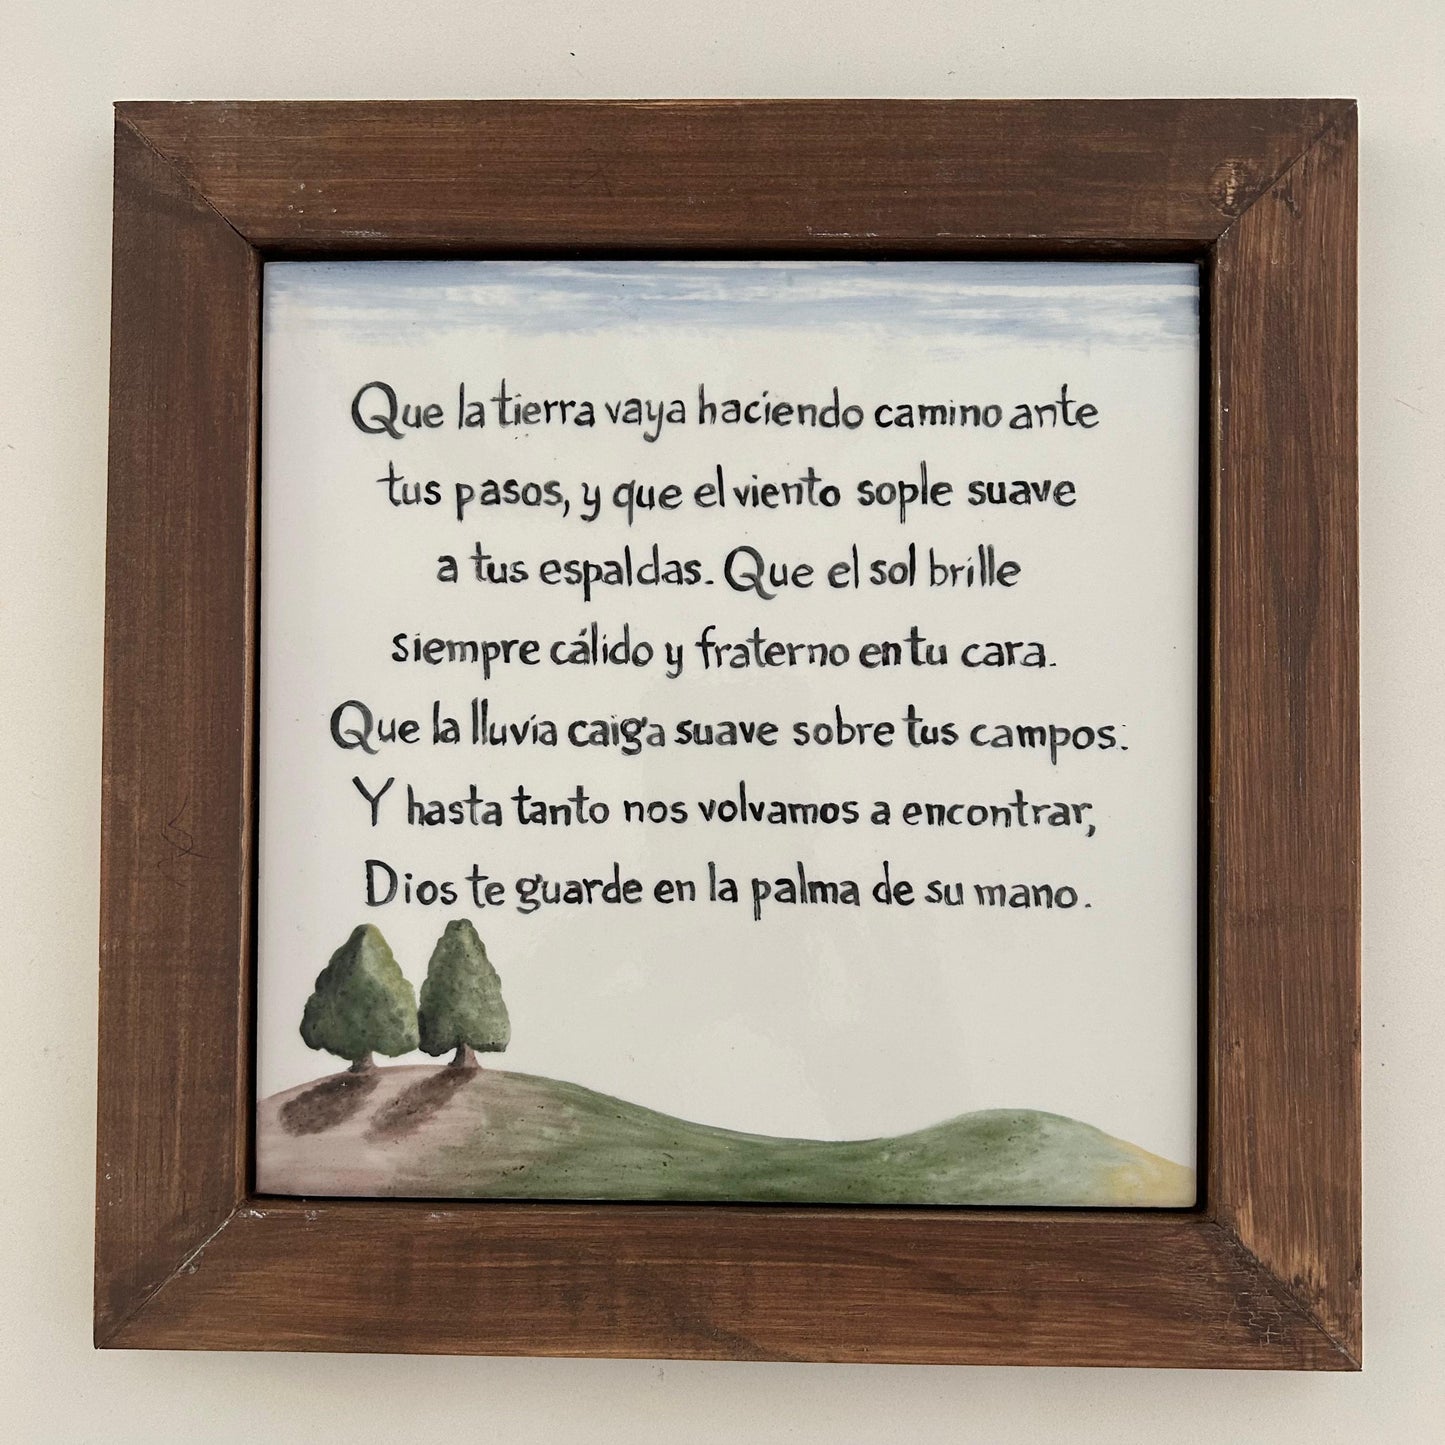 Que la tierra vaya haciendo camino ante
tus pasos, y que el viento sople suave
a tus espaldas. Que el sol brille
siempre cálido y fraterno en tu cara.
Que la lluvia caiga suave sobre tus campos.
Y hasta tanto nos volvamos a encontrar,
Dios te guarde en la palma de su mano.